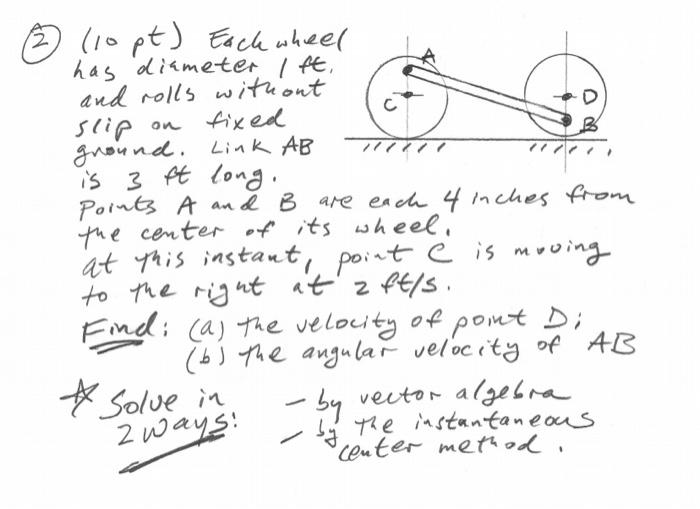 ② (10 pt) Each wheel
has diameter 1 ft.
and rolls without
slip on fixed
ground. Link AB
is 3 ft long.
A
C
D
B
Points A and B are each 4 inches from
the center of its wheel.
At this instant, point C is moving
to the right at 2 ft/s.
Find: (a) the velocity of point D;
(b) the angular velocity of AB
☆ Solve in
2 ways:
- by vector algebra
- by the instantaneous
center method.